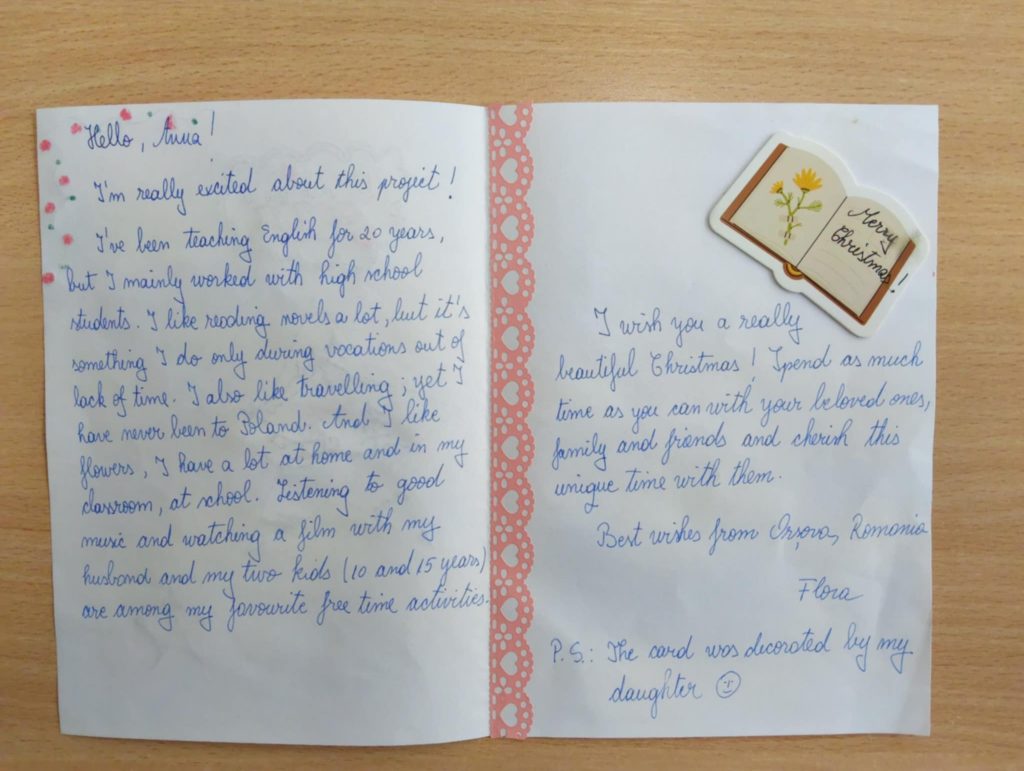 Hello, Anna!
I'm really excited about this project!
I've been teaching English for 20 years,
but I mainly worked with high school
students. I like reading novels a lot, but it's
something I do only during vacations out of
lack of time. I also like travelling; yet I
have never been to Poland. And I like
flowers, I have a lot at home and in my
classroom, at school. Listening to good
music and watching a film with my
husband and my two kids (10 and 15 years)
are among my favourite free time activities.
Merry
Christmas!
I wish you a really
beautiful Christmas! Spend as much
time as you can with your beloved ones,
family and friends and cherish this
unique time with them.
Best wishes from Orșova, Romania
Flora
P.S.: The card was decorated by my
daughter ☺